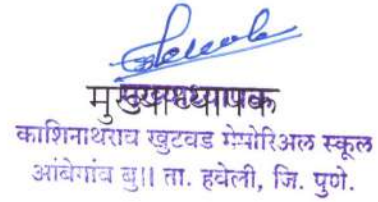 मुख्याध्यापक
काशिनाथराव खुटवड मेमोरिअल स्कूल
आंबेगांव बु|| ता. हवेली, जि. पुणे.